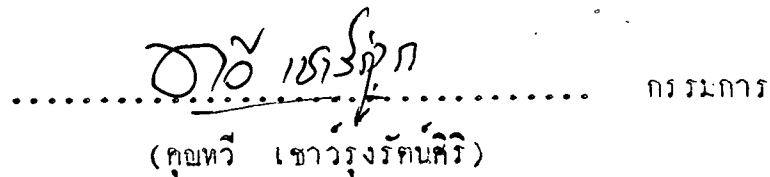 กรรมการ
(คุณทวี เชาว์รุ่งรัตน์ศิริ)